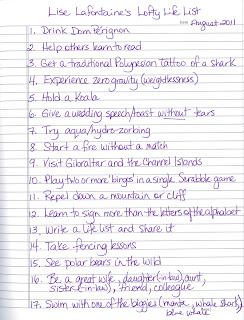 Lise Lafontaine's Lofty Life List
DATE August 2011
1. Drink Dom Pérignon
2. Help others learn to read
3. Get a traditional Polynesian tattoo of a shark
4. Experience zero gravity (weightlessness)
5. Hold a Koala
6. Give a wedding speech/toast without tears
7. Try aqua/hydro-zorbing
8. Start a fire without a match
9. Visit Gibraltar and the Channel Islands
10. Play two or more 'bingos' in a single Scrabble game
11. Repel down a mountain or cliff
12. Learn to sign more than the letters of the alphabet
13. Write a Life List and Share it
14. Take fencing lessons
15. See polar bears in the wild
16. Be a great wife, daughter(-in-law), aunt,
sister(-in-law), friend, colleague
17. Swim with one of the biggies (manta, whale shark,
blue whale)